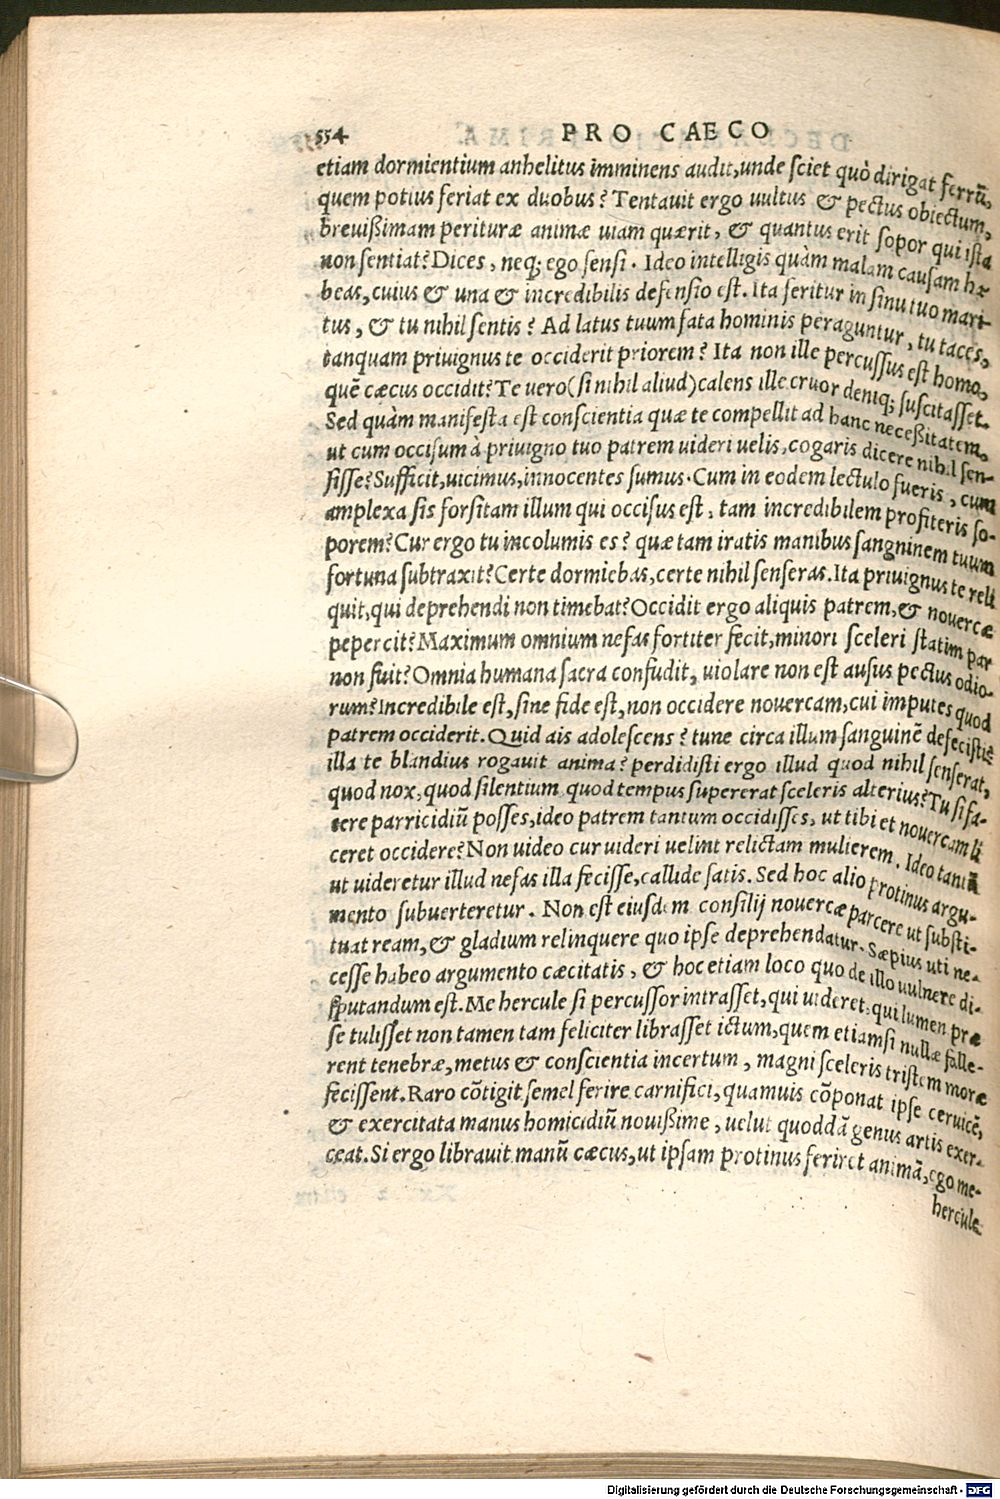 554 PRO CAECO
etiam dormientium anhelitus imminens audit, unde ſciet quò dirigat ferrū,
quem potius feriat ex duobus? Tentauit ergo uultus & pectus obiectum,
breuißimam perituræ animæ uiam quærit, & quantus erit ſopor qui iſta
non ſentiat? Dices, neq; ego ſenſi. Ideo intelligis quàm malam cauſam ha
beas, cuius & una & incredibilis defenſio eſt. Ita feritur in ſinu tuo mari
tus, & tu nihil ſentis? Ad latus tuum fata hominis peraguntur, tu taces,
tanquam priuignus te occiderit priorem? Ita non ille percuſſus eſt homo,
quē cæcus occidit? Te uero (ſi nihil aliud) calens ille cruor deniq; ſuſcitaſſet.
Sed quàm manifeſta eſt conſcientia quæ te compellit ad hanc neceßitatem,
ut cum occiſum à priuigno tuo patrem uideri uelis, cogaris dicere nihil ſen-
ſiſſe? Sufficit, uicimus, innocentes ſumus. Cum in eodem lectulo fueris, cum
amplexa ſis forſitam illum qui occiſus eſt, tam incredibilem profiteris ſo-
porem? Cur ergo tu incolumis es? quæ tam iratis manibus ſangninem tuum
fortuna ſubtraxit? Certe dormiebas, certe nihil ſenſeras. Ita priuignus te reli
quit, qui deprehendi non timebat? Occidit ergo aliquis patrem, & nouercæ
pepercit? Maximum omnium nefas fortiter fecit, minori ſceleri ſtatim par
non fuit? Omnia humana ſacra confudit, uiolare non eſt auſus pectus odio-
rum? Incredibile eſt, ſine fide eſt, non occidere nouercam, cui imputes quod
patrem occiderit. Quid ais adoleſcens? tune circa illum ſanguinē defeciſti?
illa te blandius rogauit anima? perdidiſti ergo illud quod nihil ſenſerat,
quod nox, quod ſilentium, quod tempus ſupererat ſceleris alterius? Tu ſi fa-
cere parricidiū poſſes, ideo patrem tantum occidiſſes, ut tibi et nouercam li
ceret occidere? Non uideo cur uideri uelint relictam mulierem. Ideo tantū
ut uideretur illud nefas illa feciſſe, callide ſatis. Sed hoc alio protinus argu-
mento ſubuerteretur. Non eſt eiuſdem conſilij nouercæ parcere ut ſubſti-
tuat ream, & gladium relinquere quo ipſe deprehendatur. Sæpius uti ne-
ceſſe habeo argumento cæcitatis, & hoc etiam loco quo de illo uulnere di-
ſputandum eſt. Me hercule ſi percuſſor intraſſet, qui uideret, qui lumen præ
ſe tuliſſet non tamen tam feliciter libraſſet ictum, quem etiamſi nullæ falle-
rent tenebræ, metus & conſcientia incertum, magni ſceleris triſtem moræ
feciſſent. Raro cōtigit ſemel ferire carnifici, quamuis cōponat ipſe ceruicē,
& exercitata manus homicidiū nouißime, uelut quoddā genus artis exer-
ceat. Si ergo librauit manū cæcus, ut ipſam protinus feriret animā, ego me-
hercule
Digitalisierung gefördert durch die Deutsche Forschungsgemeinschaft - DFG